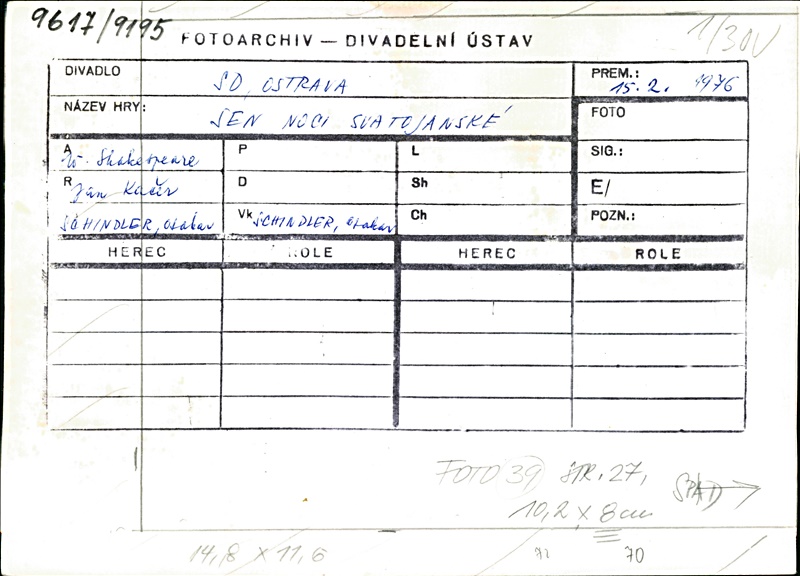 9617/9195
FOTOARCHIV — DIVADELNÍ ÚSTAV
1/30V
DIVADLO SD, OSTRAVA
PREM.: 15. 2. 1976
NÁZEV HRY: SEN NOCI SVATOJANSKÉ
FOTO
A W. Shakespeare P L
SIG.:
R Jan Kačer D Sh
E/
SCHINDLER, Otakar Vk SCHINDLER, Otakar Ch
POZN.:
HEREC ROLE HEREC ROLE
FOTO 39 STR. 27,
10,2 x 8 cm
14,8 x 11,6
70